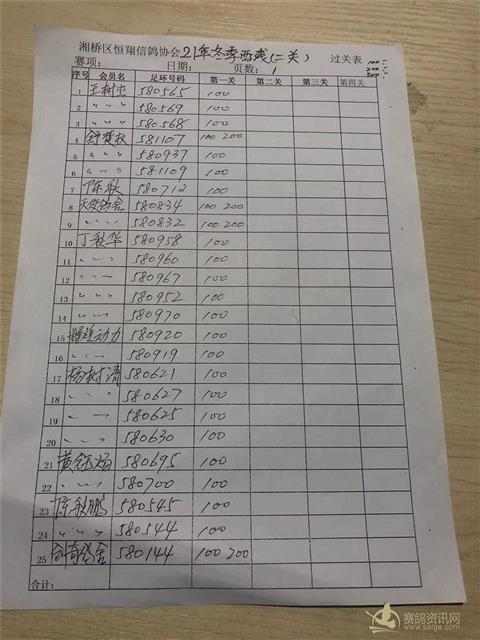 湘桥区恒翔信鸽协会21年冬季西线(二关) 过关表
赛项: 日期: 页数: 1
序号 会员名 足环号码 第一关 第二关 第三关 第四关
1 王树 580565 100
2 〃 〃 〃 580569 100
3 〃 〃 〃 580568 100
4 581107 100 200
5 〃 〃 〃 580937 100
6 〃 〃 〃 581109 100
7 陈秋 580712 100
8 天使鸽舍 580834 100 200
9 580832 100 200
10 丁秋华 580958 100
11 580960 100
12 580967 100
13 〃 〃 〃 580952 100
14 580970 100
15 动力 580920 100
16 580919 100
17 杨树清 580621 100
18 580627 100
19 580625 100
20 580630 100
21 黄 580695 100
22 580700 100
23 陈秋鹏 580545 100
24 〃 〃 〃 580544 100
25 鸽舍 580144 100 200
合计:
赛鸽资讯网
www.saige.com